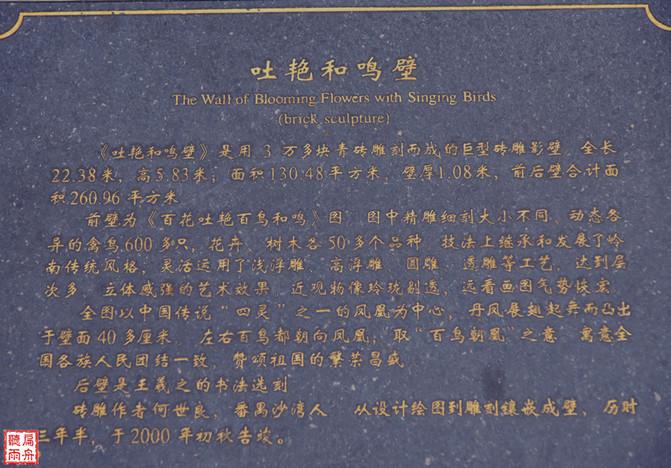 吐艳和鸣壁
The Wall of Blooming Flowers with Singing Birds
(brick sculpture)
《吐艳和鸣壁》是用 3 万多块青砖雕刻而成的巨型砖雕影壁，全长
22.38米，高5.83米；面积130.48平方米，壁厚1.08米，前后壁合计面
积260.96 平方米
前壁为《百花吐艳百鸟和鸣》图 图中精雕细刻大小不同、动态各
异的禽鸟600多只，花卉、树木各50多个品种 技法上继承和发展了岭
南传统风格，灵活运用了浅浮雕、高浮雕、圆雕、透雕等工艺，达到层
次多、立体感强的艺术效果 近观物像玲珑剔透，远看画图气势恢宏
全图以中国传说“四灵”之一的凤凰为中心，丹凤展翅起舞而凸出
于壁面 40 多厘米 左右百鸟都朝向凤凰，取“百鸟朝凰”之意 寓意全
国各族人民团结一致 赞颂祖国的繁荣昌盛
后壁是王羲之的书法选刻
砖雕作者何世良，番禺沙湾人 从设计绘图到雕刻镶嵌成壁，历时
三年半，于2000 年初秋告竣。
聽雨
扁舟